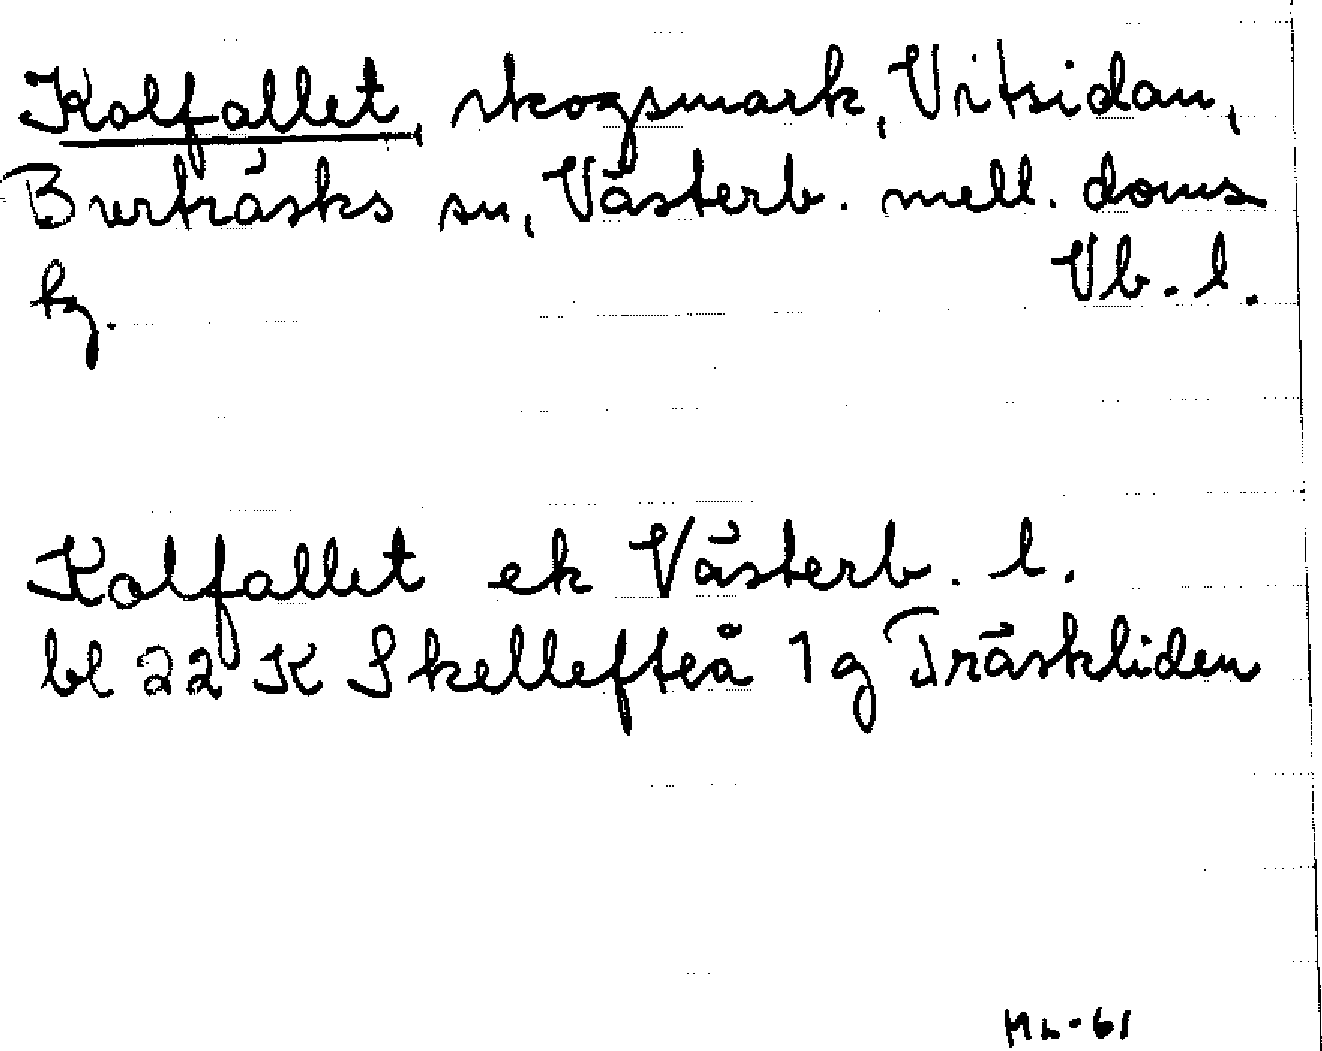 Kolfallet, skogsmark, Vitsidan,
Burträsks sn, Västerb. mell. doms
Vb. l.
hg.
Kolfallet ek Västerb. l.
bl 22 K Skellefteå 1g Träskliden
ML-61